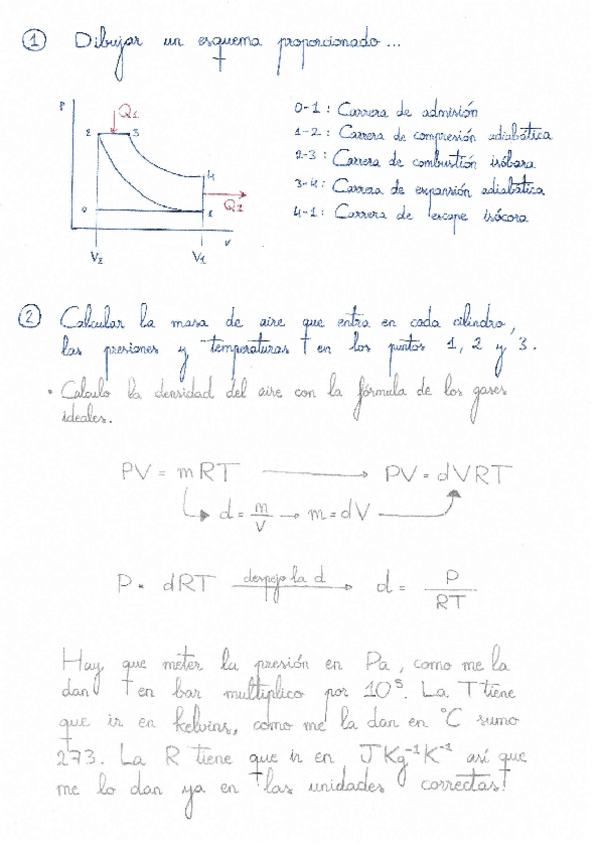 1 Dibujar un esquema proporcionado...
P
Q1
2 3
4
Q2
0 1
V
V2 V1
0-1: Carrera de admisión
1-2: Carrera de compresión adiabática
2-3: Carrera de combustión isóbara
3-4: Carrera de expansión adiabática
4-1: Carrera de escape isócora
2 Calcular la masa de aire que entra en cada cilindro,
las presiones y temperaturas en los puntos 1, 2 y 3.
· Calculo la densidad del aire con la fórmula de los gases
ideales.
PV = mRT → PV = dVRT
d = m/V → m = dV
P = dRT despejo la d → d = P/RT
Hay que meter la presión en Pa, como me la
dan en bar multiplico por 10⁵. La T tiene
que ir en kelvins, como me la dan en °C sumo
273. La R tiene que ir en JKg⁻¹K⁻¹ así que
me lo dan ya en las unidades correctas!